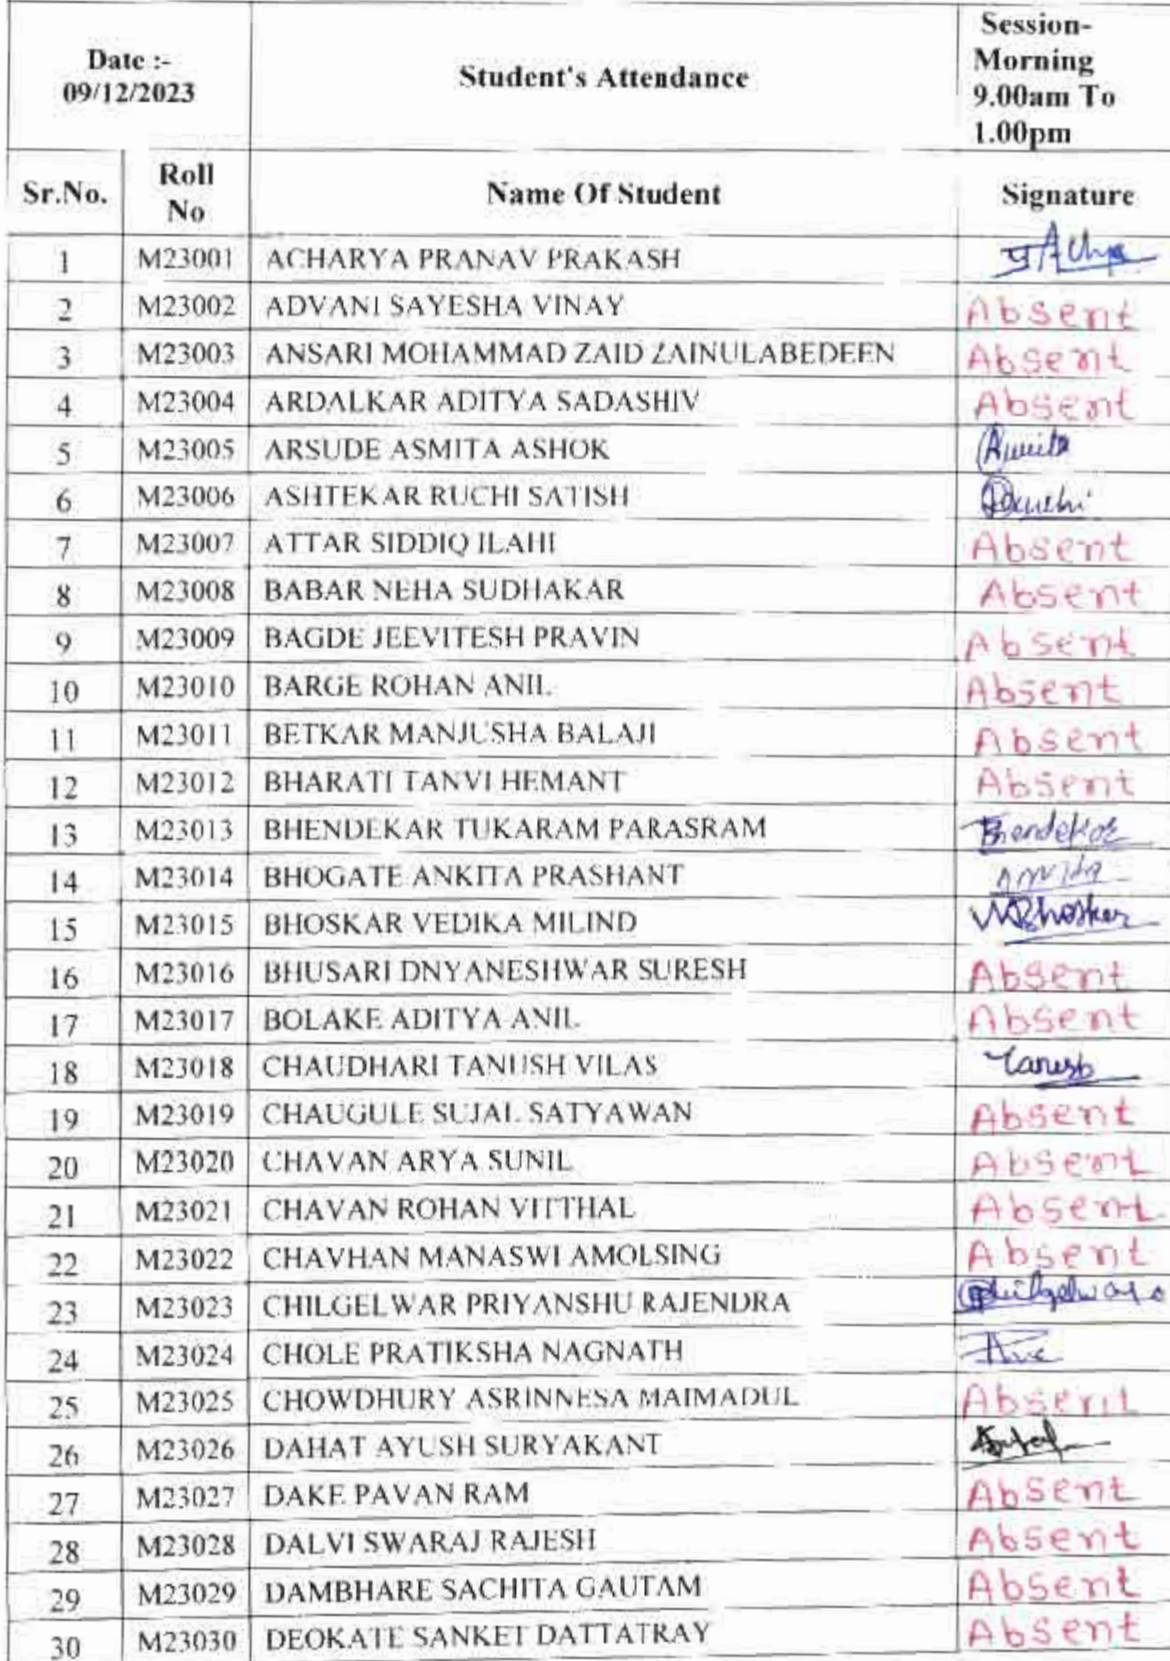 Date :-
09/12/2023
Student's Attendance
Session-
Morning
9.00am To
1.00pm
Sr.No. Roll No Name Of Student Signature
1 M23001 ACHARYA PRANAV PRAKASH
2 M23002 ADVANI SAYESHA VINAY Absent
3 M23003 ANSARI MOHAMMAD ZAID ZAINULABEDEEN Absent
4 M23004 ARDALKAR ADITYA SADASHIV Absent
5 M23005 ARSUDE ASMITA ASHOK
6 M23006 ASHTEKAR RUCHI SATISH
7 M23007 ATTAR SIDDIQ ILAHI Absent
8 M23008 BABAR NEHA SUDHAKAR Absent
9 M23009 BAGDE JEEVITESH PRAVIN Absent
10 M23010 BARGE ROHAN ANIL Absent
11 M23011 BETKAR MANJUSHA BALAJI Absent
12 M23012 BHARATI TANVI HEMANT Absent
13 M23013 BHENDEKAR TUKARAM PARASRAM Bhendekar
14 M23014 BHOGATE ANKITA PRASHANT
15 M23015 BHOSKAR VEDIKA MILIND
16 M23016 BHUSARI DNYANESHWAR SURESH Absent
17 M23017 BOLAKE ADITYA ANIL Absent
18 M23018 CHAUDHARI TANUSH VILAS Tanush
19 M23019 CHAUGULE SUJAL SATYAWAN Absent
20 M23020 CHAVAN ARYA SUNIL Absent
21 M23021 CHAVAN ROHAN VITTHAL Absent
22 M23022 CHAVHAN MANASWI AMOLSING Absent
23 M23023 CHILGELWAR PRIYANSHU RAJENDRA
24 M23024 CHOLE PRATIKSHA NAGNATH
25 M23025 CHOWDHURY ASRINNESA MAIMADUL Absent
26 M23026 DAHAT AYUSH SURYAKANT
27 M23027 DAKE PAVAN RAM Absent
28 M23028 DALVI SWARAJ RAJESH Absent
29 M23029 DAMBHARE SACHITA GAUTAM Absent
30 M23030 DEOKATE SANKET DATTATRAY Absent